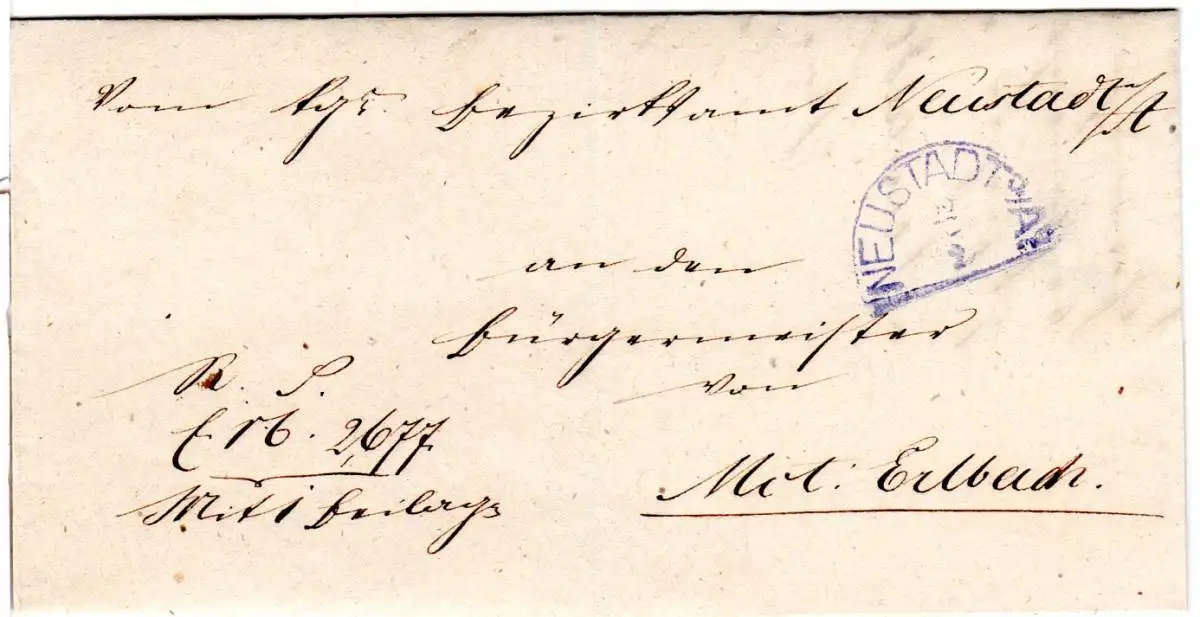 Vom kgr. Bezirksamt Neustadt a/A.
NEUSTADT a/A.
2
an den
Bürgermeister
von
Mkt: Erlbach.
R. S.
E 2677
Mit 1 Beilage